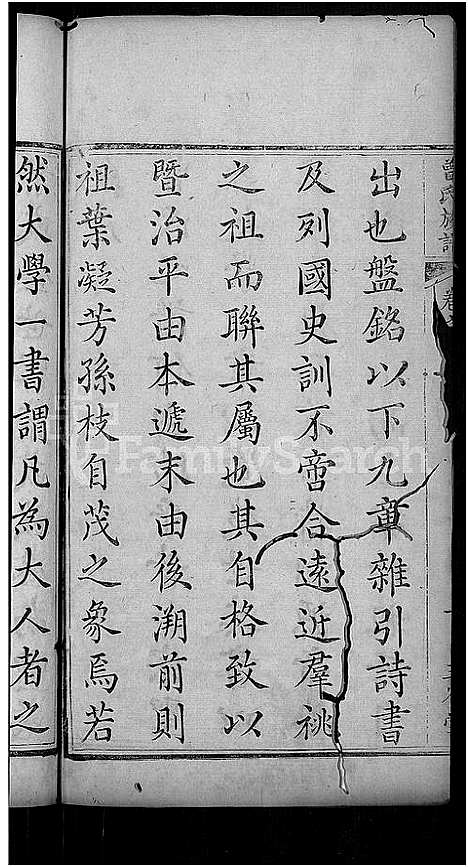 曾氏族譜
卷
出也盤銘以下九章雜引詩書
及列國史訓不啻合遠近羣祧
之祖而聯其屬也其自格致以
暨治平由本遞末由後溯前則
祖葉凝芳孫枝自茂之象焉若
然大學一書謂凡為大人者之
FamilySearch